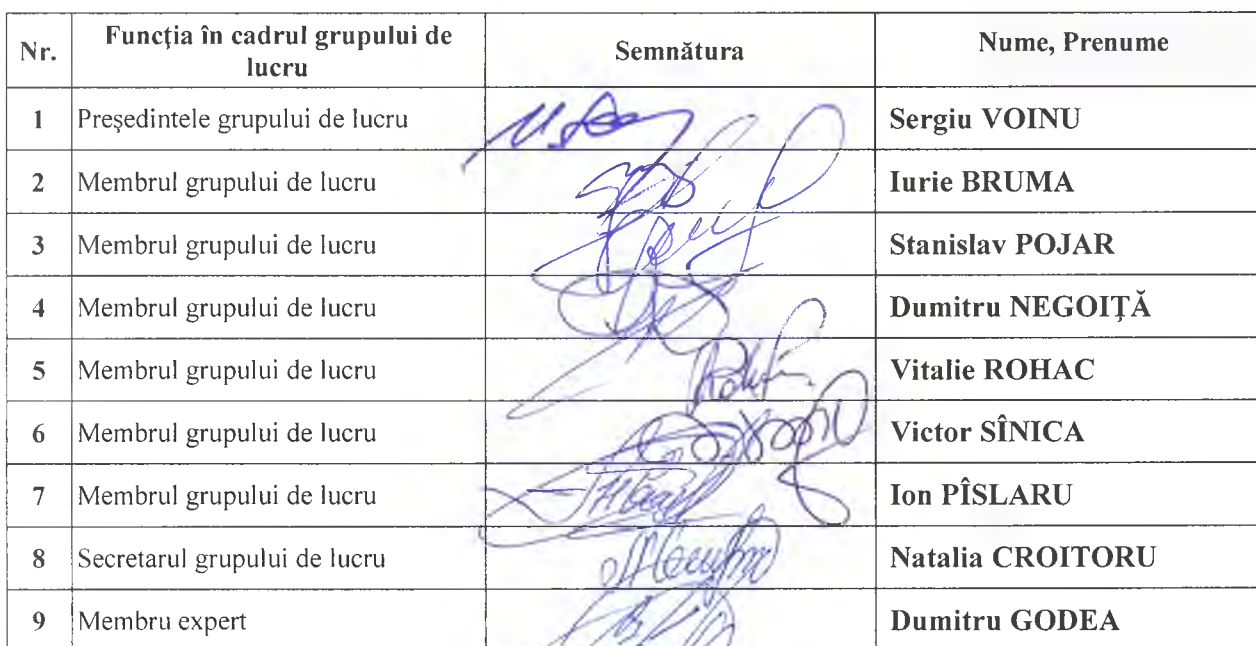 Nr. Funcția în cadrul grupului de lucru Semnătura Nume, Prenume
1 Președintele grupului de lucru Sergiu VOINU
2 Membrul grupului de lucru Iurie BRUMA
3 Membrul grupului de lucru Stanislav POJAR
4 Membrul grupului de lucru Dumitru NEGOIȚĂ
5 Membrul grupului de lucru Vitalie ROHAC
6 Membrul grupului de lucru Victor SÎNICA
7 Membrul grupului de lucru Ion PÎSLARU
8 Secretarul grupului de lucru Natalia CROITORU
9 Membru expert Dumitru GODEA